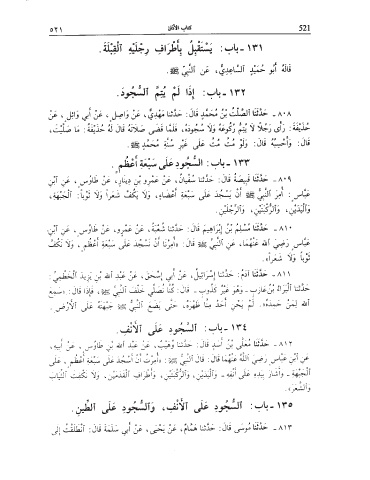 ٥٢١ كتاب الأذان 521
١٣١ - باب: يَسْتَقْبِلُ بِأَطْرَافِ رِجْلَيْهِ الْقِبْلَةَ.
قَالَهُ أَبُو حُمَيْدٍ السَّاعِدِيُّ، عَنِ النَّبِيِّ ﷺ.
١٣٢ - باب: إِذَا لَمْ يُتِمَّ السُّجُودَ.
٨٠٨ - حَدَّثَنَا الصَّلْتُ بْنُ مُحَمَّدٍ قَالَ: حَدَّثَنَا مَهْدِيٌّ، عَنْ وَاصِلٍ، عَنْ أَبِي وَائِلٍ، عَنْ
حُذَيْفَةَ: رَأَى رَجُلًا لَا يُتِمُّ رُكُوعَهُ وَلَا سُجُودَهُ، فَلَمَّا قَضَى صَلَاتَهُ قَالَ لَهُ حُذَيْفَةُ: مَا صَلَّيْتَ،
قَالَ: وَأَحْسِبُهُ قَالَ: وَلَوْ مُتَّ مُتَّ عَلَى غَيْرِ سُنَّةِ مُحَمَّدٍ ﷺ.
١٣٣ - باب: السُّجُودِ عَلَى سَبْعَةِ أَعْظُمٍ.
٨٠٩ - حَدَّثَنَا قَبِيصَةُ قَالَ: حَدَّثَنَا سُفْيَانُ، عَنْ عَمْرِو بْنِ دِينَارٍ، عَنْ طَاوُسٍ، عَنِ ابْنِ
عَبَّاسٍ: أُمِرَ النَّبِيُّ ﷺ أَنْ يَسْجُدَ عَلَى سَبْعَةِ أَعْضَاءٍ، وَلَا يَكُفَّ شَعَرًا وَلَا ثَوْبًا: الْجَبْهَةِ،
وَالْيَدَيْنِ، وَالرُّكْبَتَيْنِ، وَالرِّجْلَيْنِ.
٨١٠ - حَدَّثَنَا مُسْلِمُ بْنُ إِبْرَاهِيمَ قَالَ: حَدَّثَنَا شُعْبَةُ، عَنْ عَمْرٍو، عَنْ طَاوُسٍ، عَنِ ابْنِ
عَبَّاسٍ رَضِيَ اللهُ عَنْهُمَا، عَنِ النَّبِيِّ ﷺ قَالَ: «أُمِرْنَا أَنْ نَسْجُدَ عَلَى سَبْعَةِ أَعْظُمٍ، وَلَا نَكُفَّ
ثَوْبًا وَلَا شَعَرًا».
٨١١ - حَدَّثَنَا آدَمُ: حَدَّثَنَا إِسْرَائِيلُ، عَنْ أَبِي إِسْحَقَ، عَنْ عَبْدِ اللهِ بْنِ يَزِيدَ الْخَطْمِيِّ:
حَدَّثَنَا الْبَرَاءُ بْنُ عَازِبٍ - وَهُوَ غَيْرُ كَذُوبٍ - قَالَ: كُنَّا نُصَلِّي خَلْفَ النَّبِيِّ ﷺ، فَإِذَا قَالَ: «سَمِعَ
اللهُ لِمَنْ حَمِدَهُ». لَمْ يَحْنِ أَحَدٌ مِنَّا ظَهْرَهُ، حَتَّى يَضَعَ النَّبِيُّ ﷺ جَبْهَتَهُ عَلَى الْأَرْضِ.
١٣٤ - باب: السُّجُودِ عَلَى الْأَنْفِ.
٨١٢ - حَدَّثَنَا مُعَلَّى بْنُ أَسَدٍ قَالَ: حَدَّثَنَا وُهَيْبٌ، عَنْ عَبْدِ اللهِ بْنِ طَاوُسٍ، عَنْ أَبِيهِ،
عَنِ ابْنِ عَبَّاسٍ رَضِيَ اللهُ عَنْهُمَا قَالَ: قَالَ النَّبِيُّ ﷺ: «أُمِرْتُ أَنْ أَسْجُدَ عَلَى سَبْعَةِ أَعْظُمٍ، عَلَى
الْجَبْهَةِ - وَأَشَارَ بِيَدِهِ عَلَى أَنْفِهِ - وَالْيَدَيْنِ، وَالرُّكْبَتَيْنِ، وَأَطْرَافِ الْقَدَمَيْنِ، وَلَا نَكْفِتَ الثِّيَابَ
وَالشَّعَرَ».
١٣٥ - باب: السُّجُودِ عَلَى الْأَنْفِ، وَالسُّجُودِ عَلَى الطِّينِ.
٨١٣ - حَدَّثَنَا مُوسَى قَالَ: حَدَّثَنَا هَمَّامٌ، عَنْ يَحْيَى، عَنْ أَبِي سَلَمَةَ قَالَ: انْطَلَقْتُ إِلَى